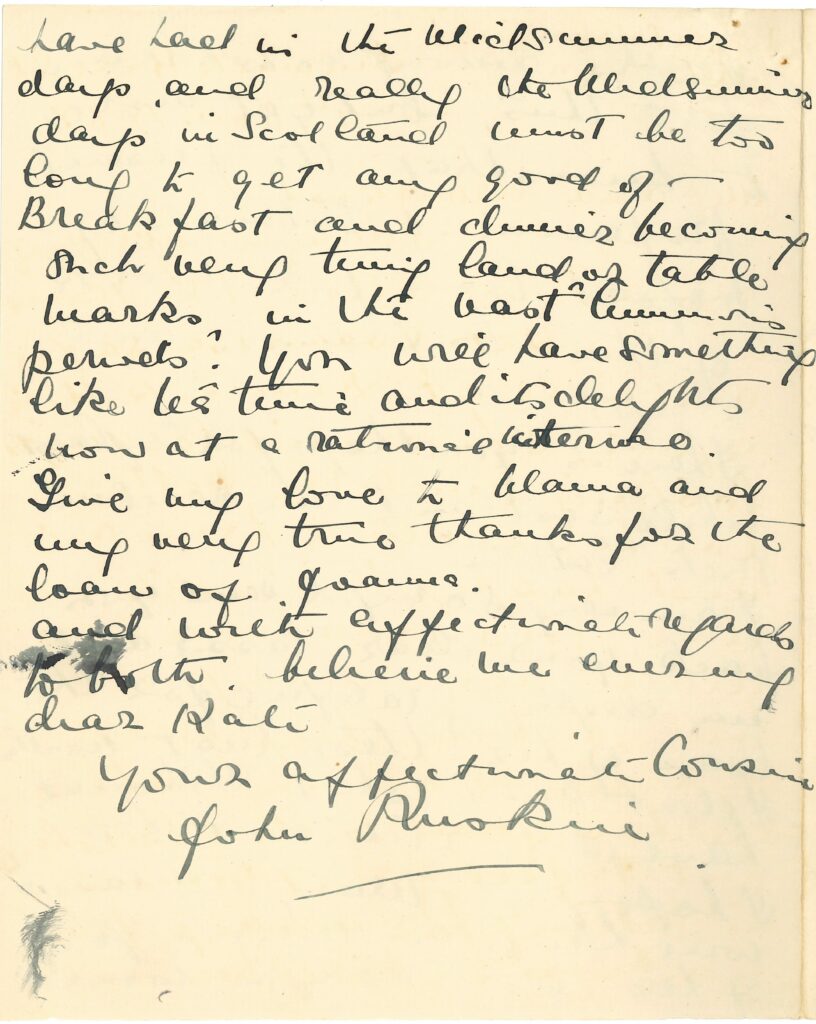 have had in the Midsummer
days, and really the Midsummer
days in Scotland must be too
long to get any good of -
Breakfast and dinner becoming
such very tiny land or table
marks in the vast "luminous
periods". You will have something
like tea time and its delights
now at a rational interval.
Give my love to Mama and
my very true thanks for the
loan of Joanna.
and with affectionate regards
to both. believe me ever my
dear Kate
Yours affectionate Cousin
John Ruskin